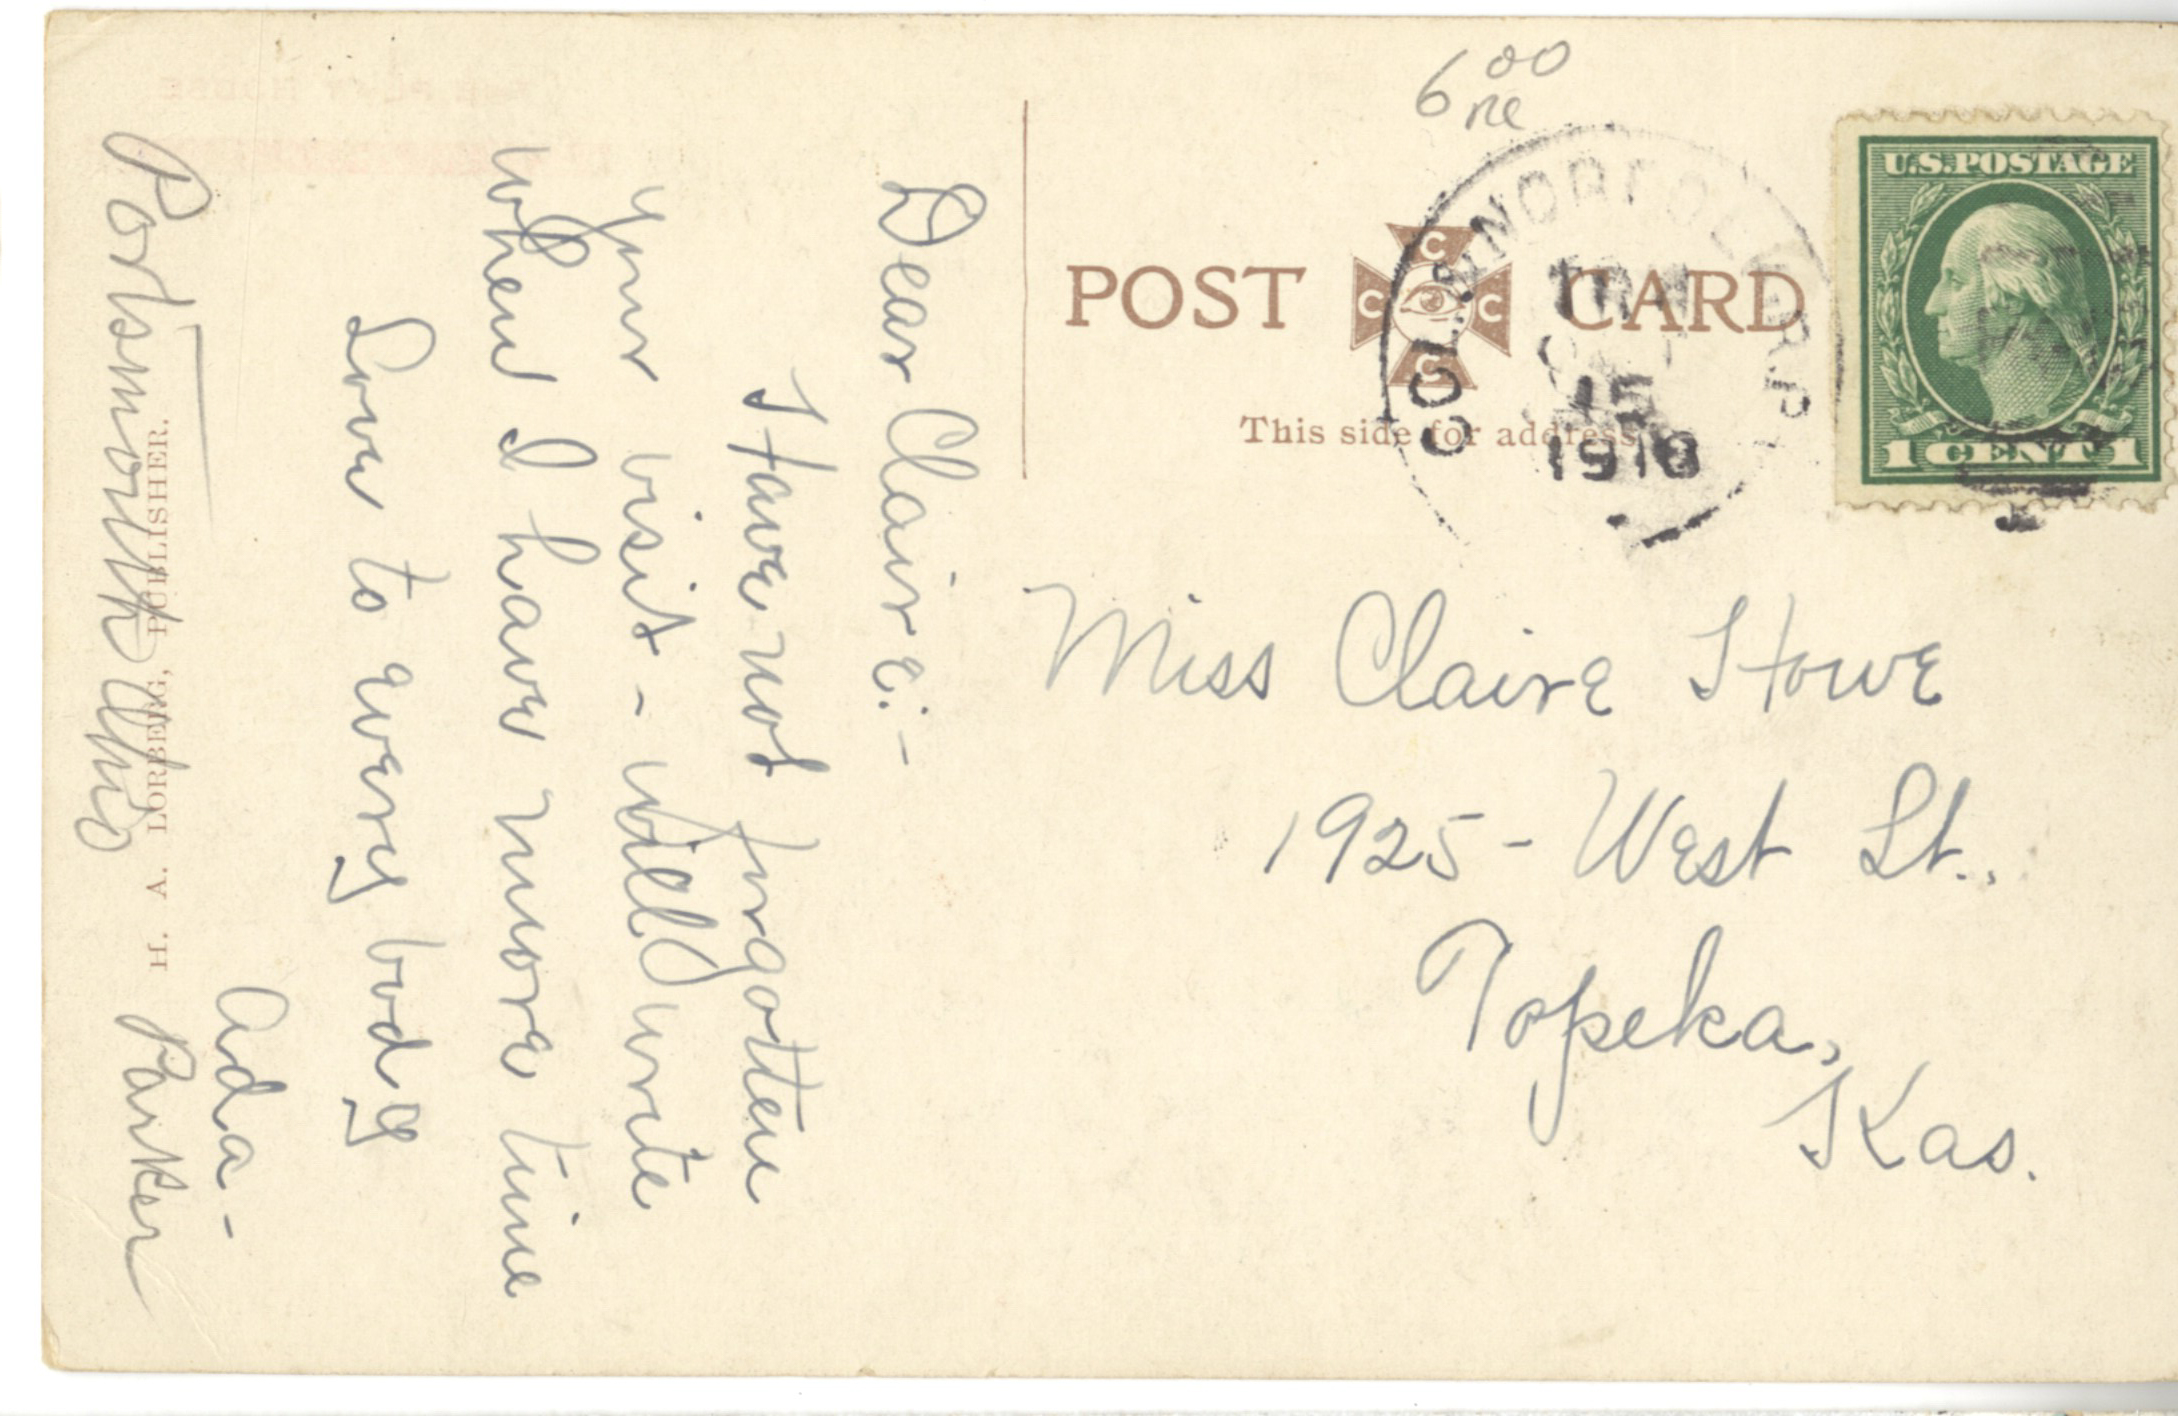 6 00
POST CARD
C C C C
This side for address
COL. & NORFOLK R.P.
15
1918
U.S. POSTAGE
1 CENT 1
Dear Claire:-
Have not forgotten
your visit - will write
when I have more time
Love to every body
Ada -
Parker
H. A. LORBERG, PUBLISHER.
Portsmouth Ohio
Miss Claire Howe
1925 - West St.,
Topeka,
Kas.